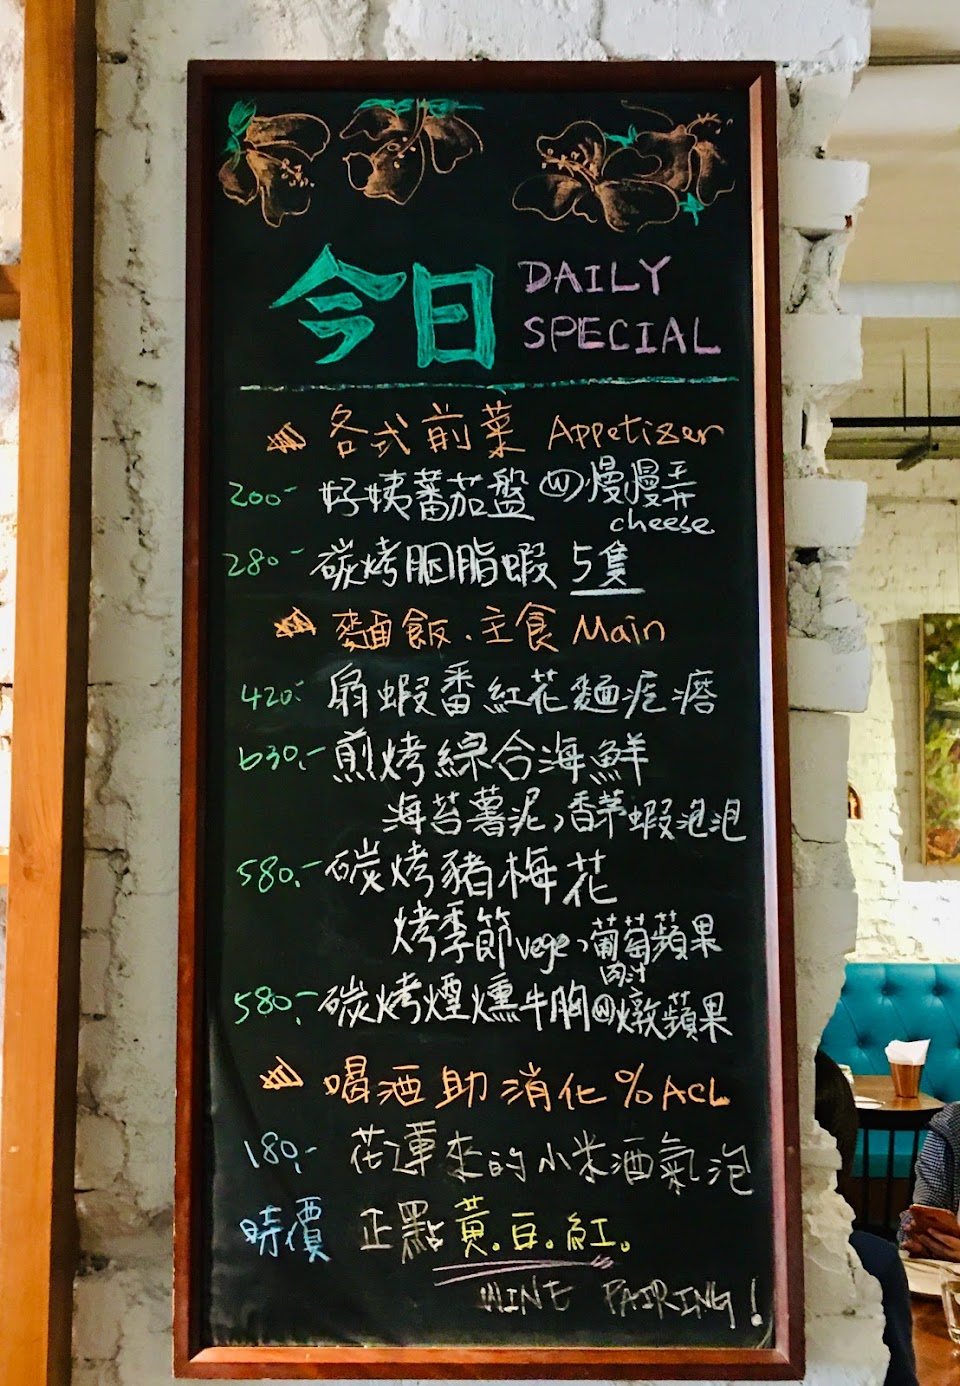 今日 DAILY
SPECIAL
各式前菜 Appetizer
200- 好姨蕃茄盤 W 慢慢弄
cheese
280- 碳烤胭脂蝦 5隻
麵飯、主食 Main
420- 扇蝦番紅花麵疙瘩
630.- 煎烤綜合海鮮
海苔薯泥、香茅蝦泡泡
580.- 碳烤豬梅花
烤季節vege、葡萄蘋果
肉汁
580.- 碳烤煙燻牛胸 W 燉蘋果
喝酒助消化 % ACL
180.- 花蓮來的小米酒氣泡
時價 正點黃.豆.紅.
WINE PAIRING!